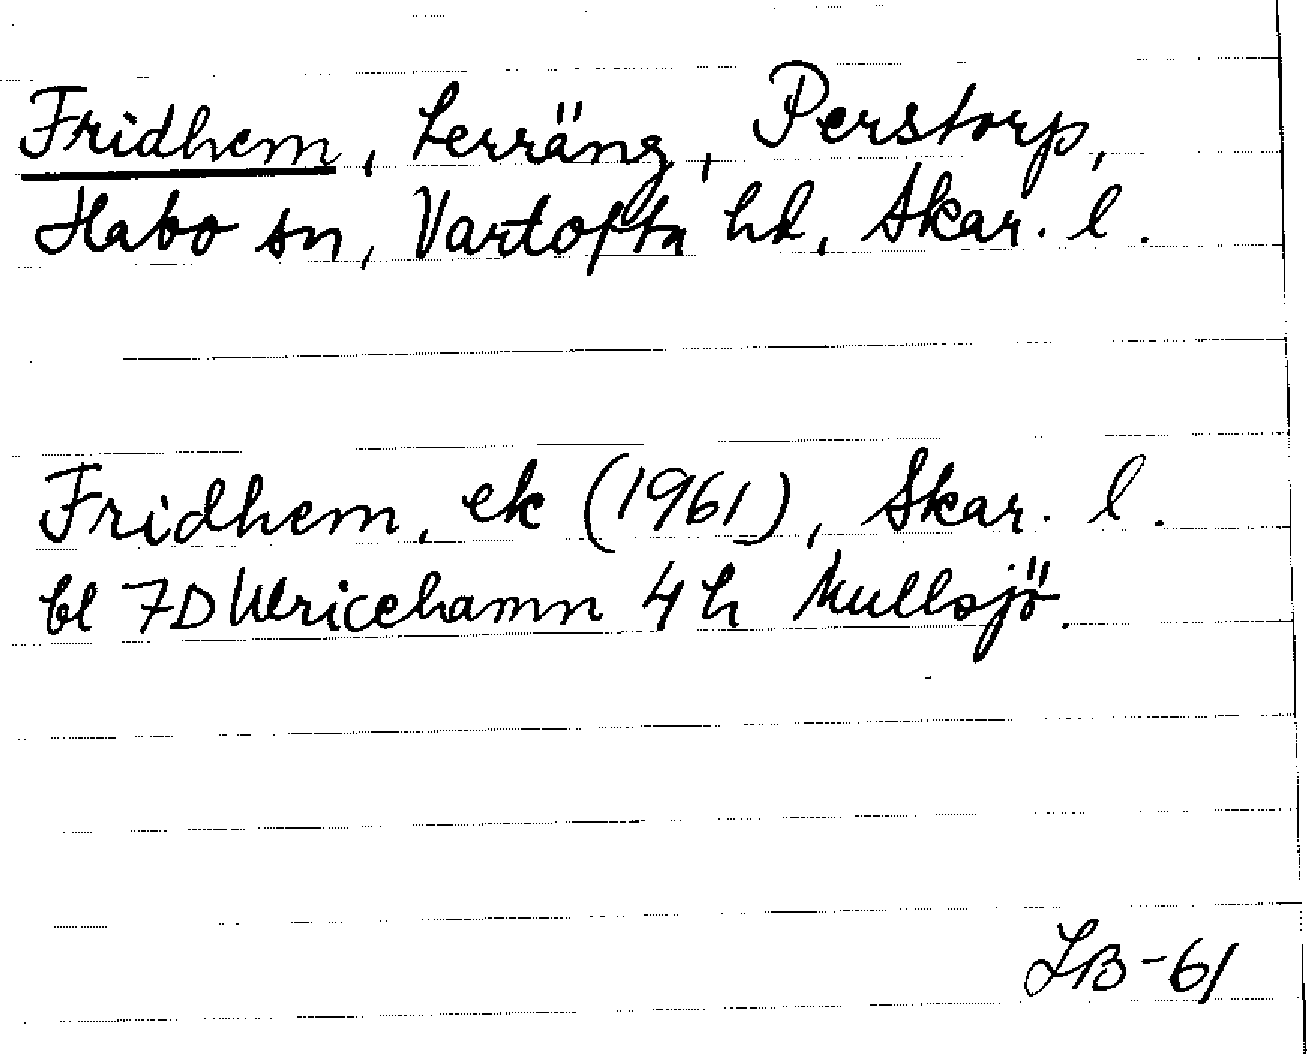 Fridhem, Lerräng, Perstorp,
Habo sn, Vartofta hd, Skar. l.
Fridhem, ek (1961), Skar. l.
bl 7D Ulricehamn 4h Mullsjö.
LB-61